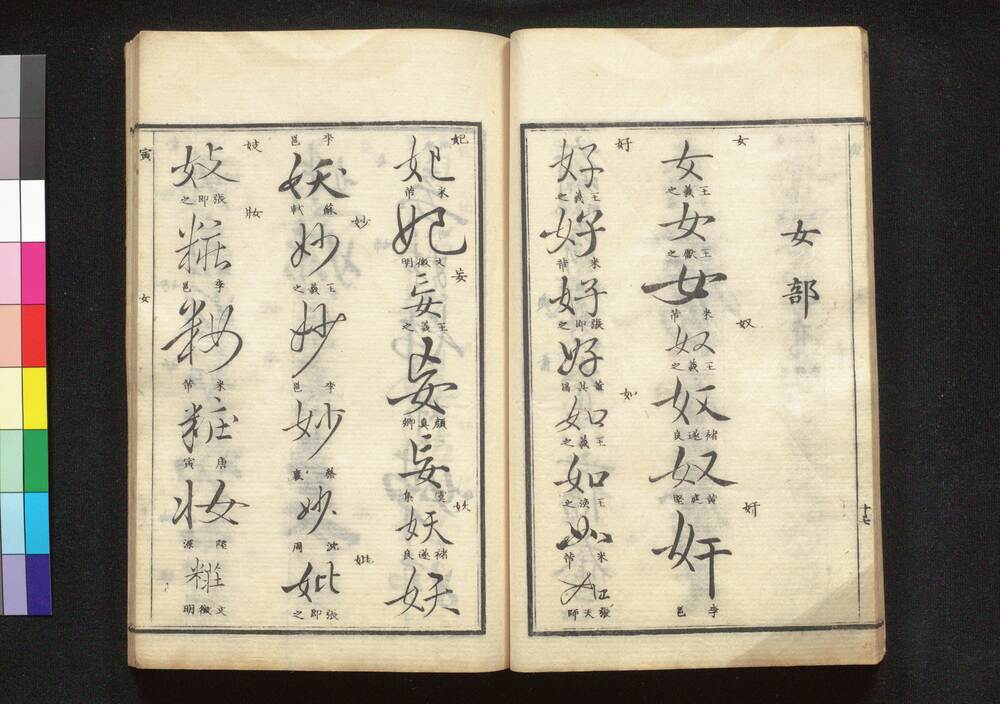 女部
女
女
王羲之
女
王獻之
女
米芾
奴
奴
王羲之
奴
褚遂良
奴
黃庭堅
奸
奸
李邕
好
好
王羲之
好
米芾
好
張即之
好
董其昌
如
如
王羲之
如
王渙之
如
米芾
如
張天師
十七
妃
妃
米芾
妃
文徵明
妄
妄
王羲之
妄
顏真卿
妄
虞集
妖
妖
褚遂良
妖
李邕
妖
蘇軾
妙
妙
王羲之
妙
李邕
妙
蔡襄
妙
沈周
妣
妣
張即之
妓
妓
張即之
妝
粧
李邕
米芾
粧
唐寅
妝
陸深
文徵明
寅
女